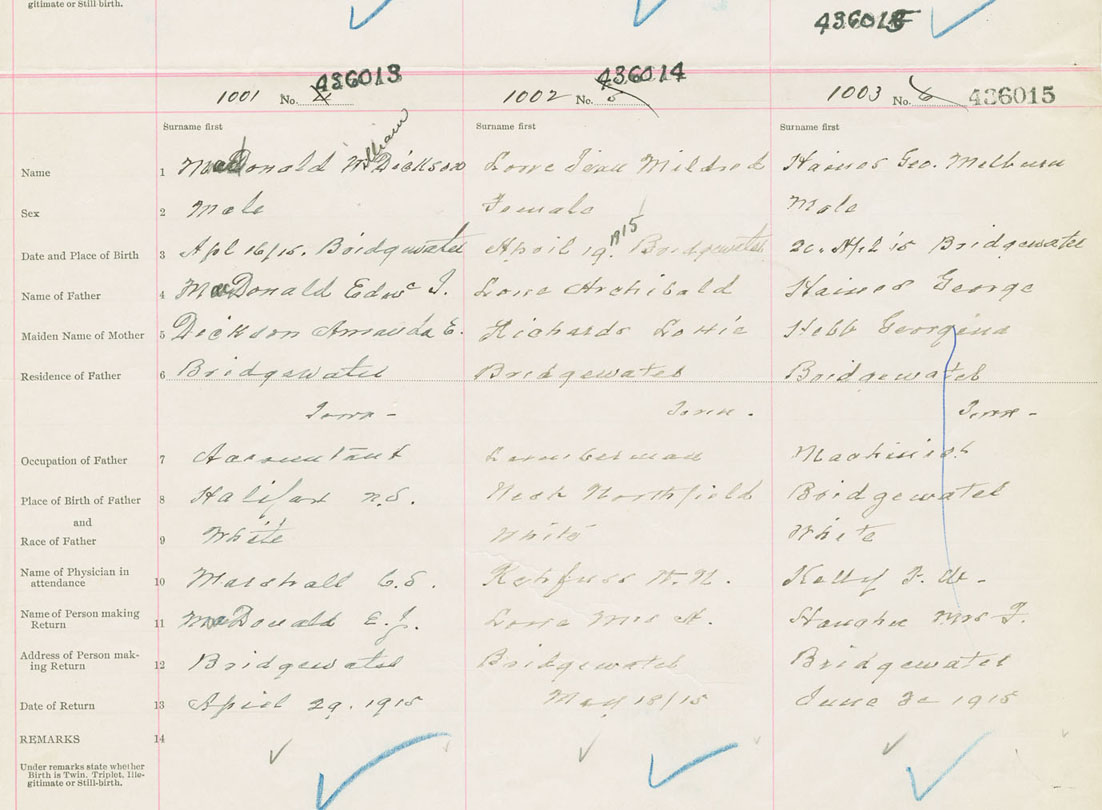 gitimate or Still-birth.
43601
436013 436014
1001 No. 4 1002 No. 5 1003 No. 6 436015
Surname first Surname first Surname first
William
Name 1 MacDonald W. Dickson Lowe Jean Mildred Haines Geo. Melburn
Sex 2 Male Female Male
Date and Place of Birth 3 Apl 16/15. Bridgewater April 19. 1915 Bridgewater 20. Apl 15 Bridgewater
Name of Father 4 MacDonald Edwd J. Lowe Archibald Haines George
Maiden Name of Mother 5 Dickson Amanda E. Richards Hebb Georgina
Residence of Father 6 Bridgewater Bridgewater Bridgewater
Town - Town. Town -
Occupation of Father 7 Accountant Lumberman Machinist
Place of Birth of Father 8 Halifax N.S. West Northfield Bridgewater
and
Race of Father 9 White White White
Name of Physician in
attendance 10 Marshall C.S. Rehfuss W.N. Kelly F. W-
Name of Person making
Return 11 MacDonald E.J. Lowe Mrs A. Mrs F.
Address of Person mak-
ing Return 12 Bridgewater Bridgewater Bridgewater
Date of Return 13 April 29. 1915 May 18/15 June 30 1915
REMARKS 14
Under remarks state whether
Birth is Twin, Triplet, Ille-
gitimate or Still-birth.